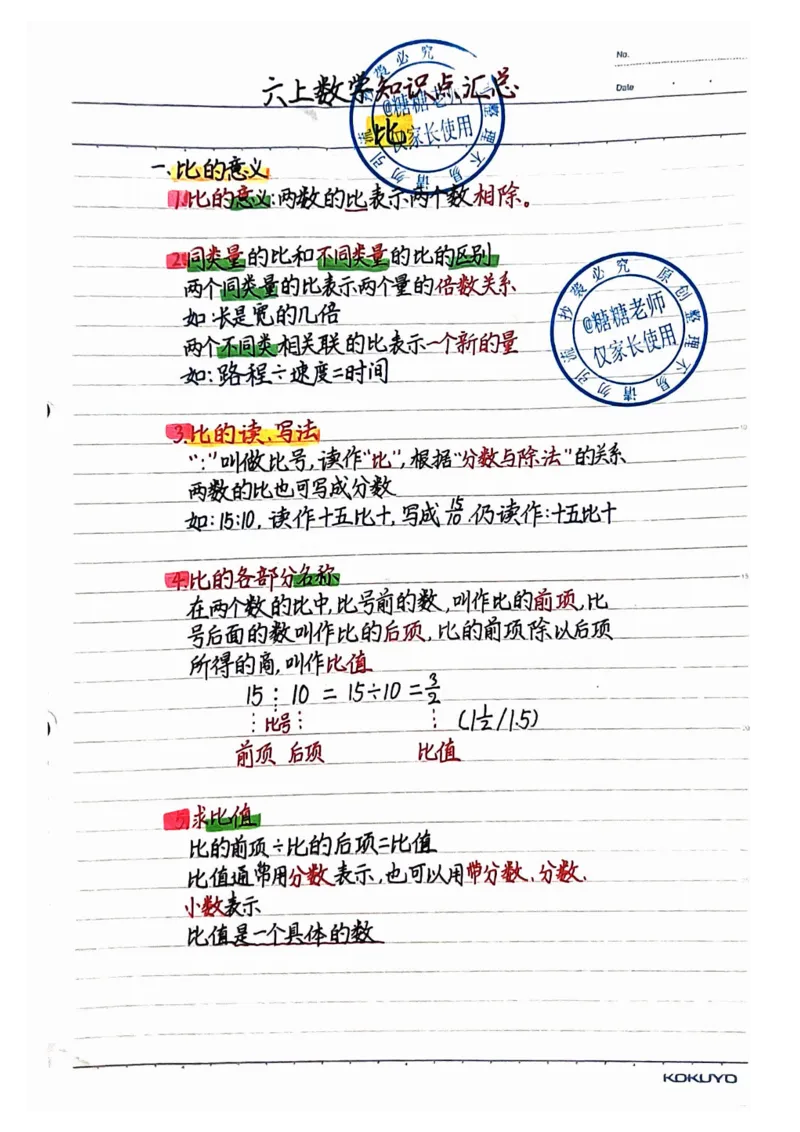 No.
Date
六上数学知识点汇总
比
一、比的意义
1.比的意义:两数的比表示两个数相除。
2.同类量的比和不同类量的比的区别
两个同类量的比表示两个量的倍数关系
如:长是宽的几倍
两个不同类相关联的比表示一个新的量
如:路程÷速度=时间
抄袭必究 原创整理不易 请勿引流
@糖糖老师
仅家长使用
3.比的读、写法
":"叫做比号,读作"比",根据"分数与除法"的关系
两数的比也可写成分数
如:15:10,读作十五比十,写成15/10.仍读作:十五比十
4.比的各部分名称
在两个数的比中,比号前的数,叫作比的前项,比
号后面的数叫作比的后项,比的前项除以后项
所得的商,叫作比值
15 : 10 = 15÷10 = 3/2
比号 (1 1/2 / 1.5)
前项 后项 比值
5.求比值
比的前项÷比的后项=比值
比值通常用分数表示,也可以用带分数、分数、
小数表示
比值是一个具体的数
KOKUYO